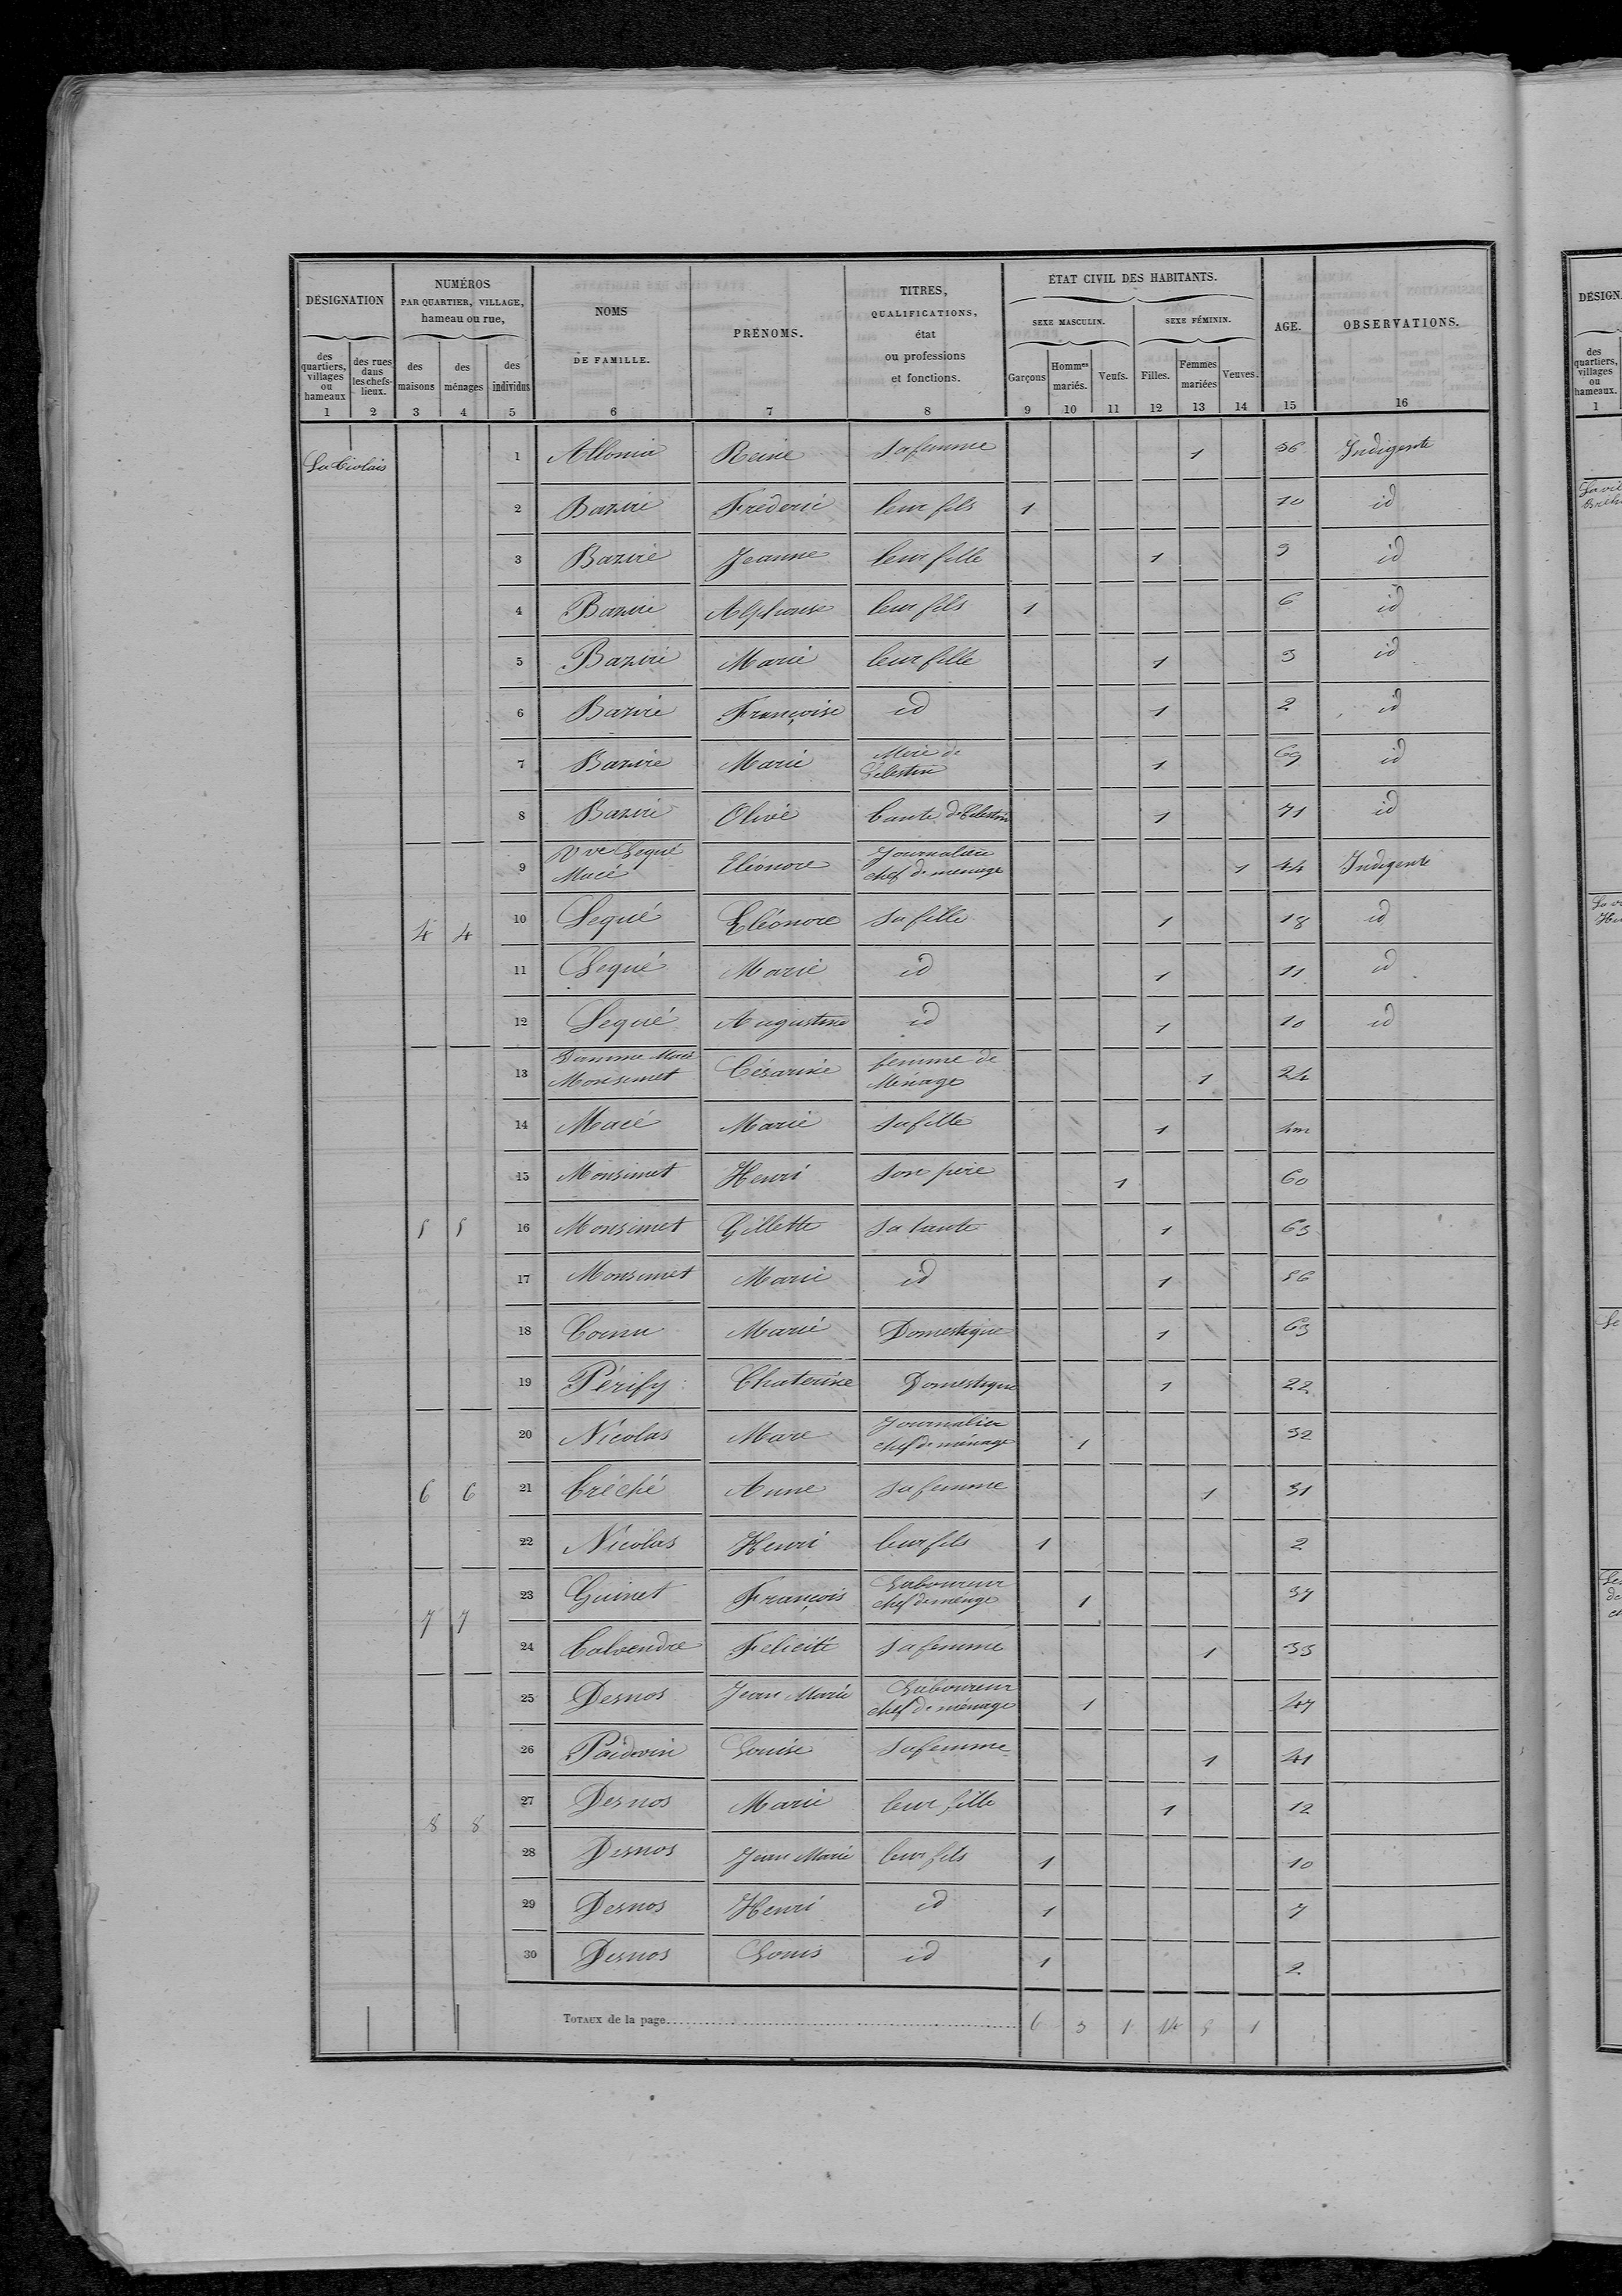 DÉSIGNATION
des quartiers, villages ou hameaux
des rues dans les chefs-lieux.
NUMÉROS
PAR QUARTIER, VILLAGE,
hameau ou rue,
des maisons
des ménages
des individus
NOMS
DE FAMILLE.
PRÉNOMS.
TITRES,
QUALIFICATIONS,
état
ou professions
et fonctions.
ÉTAT CIVIL DES HABITANTS.
SEXE MASCULIN.
SEXE FÉMININ.
Garçons
Hommes mariés.
Veufs.
Filles.
Femmes mariées
Veuves.
AGE.
OBSERVATIONS.
1 2 3 4 5 6 7 8 9 10 11 12 13 14 15 16
1 Reine Sa femme 1 36 Indigente
2 Bazire Fréderic leur fils 1 10 id
3 Bazire Jeanne leur fille 1 9 id
4 Bazire Alphonse leur fils 1 6 id
5 Bazire Marie leur fille 1 3 id
6 Bazire Françoise id 1 2 id
7 Bazire Marie Mère de Célestin 1 69 id
8 Bazire Olive tante de Célestin 1 71 id
9 Vve Lequé Macé Eléonore Journalière chef de ménage 1 44 Indigente
4 4 10 Lequé Eléonore Sa fille 1 18 id
11 Lequé Marie id 1 11 id
12 Lequé Augustine id 1 10 id
13 Macé Monsimet Césarine femme de Ménage 1 24
14 Macé Marie Sa fille 1 4m
15 Monsimet Henri Son père 1 60
5 5 16 Monsimet Gillette Sa tante 1 63
17 Monsimet Marie id 1 56
18 Marie Domestique 1 63
19 Chaterine Domestique 1 22
20 Nicolas Marc Journalier chef de ménage 1 32
6 6 21 Créché Anne Sa femme 1 31
22 Nicolas Henri leur fils 1 2
7 7 23 Guinet François Laboureur chef de ménage 1 37
24 Felicité Sa femme 1 33
25 Desnos Jean Marie Laboureur chef de ménage 1 47
26 Poidevin Louise Sa femme 1 41
27 Desnos Marie leur fille 1 12
8 8 28 Desnos Jean Marie leur fils 1 10
29 Desnos Henri id 1 7
30 Desnos Louis id 1 2
TOTAUX de la page 6 3 1 14 5 1
DÉSIGN
des quartiers, villages ou hameaux.
1